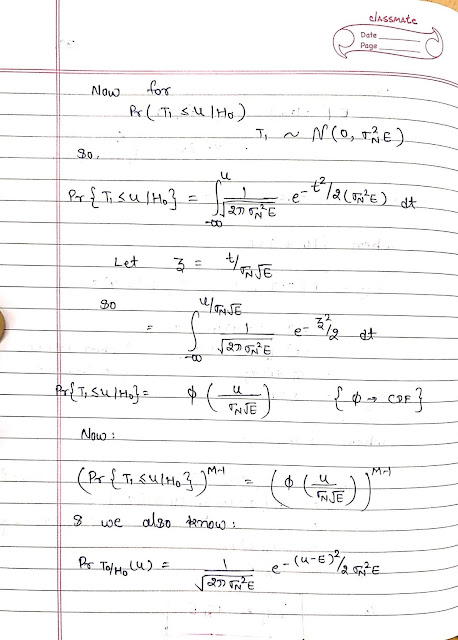 classmate
Date
Page
Now for
Pr( T₁ ≤ u / H₀ )
T₁ ~ N(0, σ_N²E)
So,
Pr{T₁ ≤ u / H₀} = ∫_{-∞}^{u} 1/√(2π σ_N²E) e^{-t²/2(σ_N²E)} dt
Let z = t/σ_N√E
so
= ∫_{-∞}^{u/σ_N√E} 1/√(2π σ_N²E) e^{-z²/2} dt
Pr{T₁ ≤ u / H₀} = ϕ( u / σ_N√E ) { ϕ → CDF }
Now :
(Pr{T₁ ≤ u / H₀})^{M-1} = (ϕ( u / σ_N√E ))^{M-1}
& we also know :
Pr T₀/H₀ (u) = 1/√(2π σ_N²E) e^{-(u-E)²/2σ_N²E}